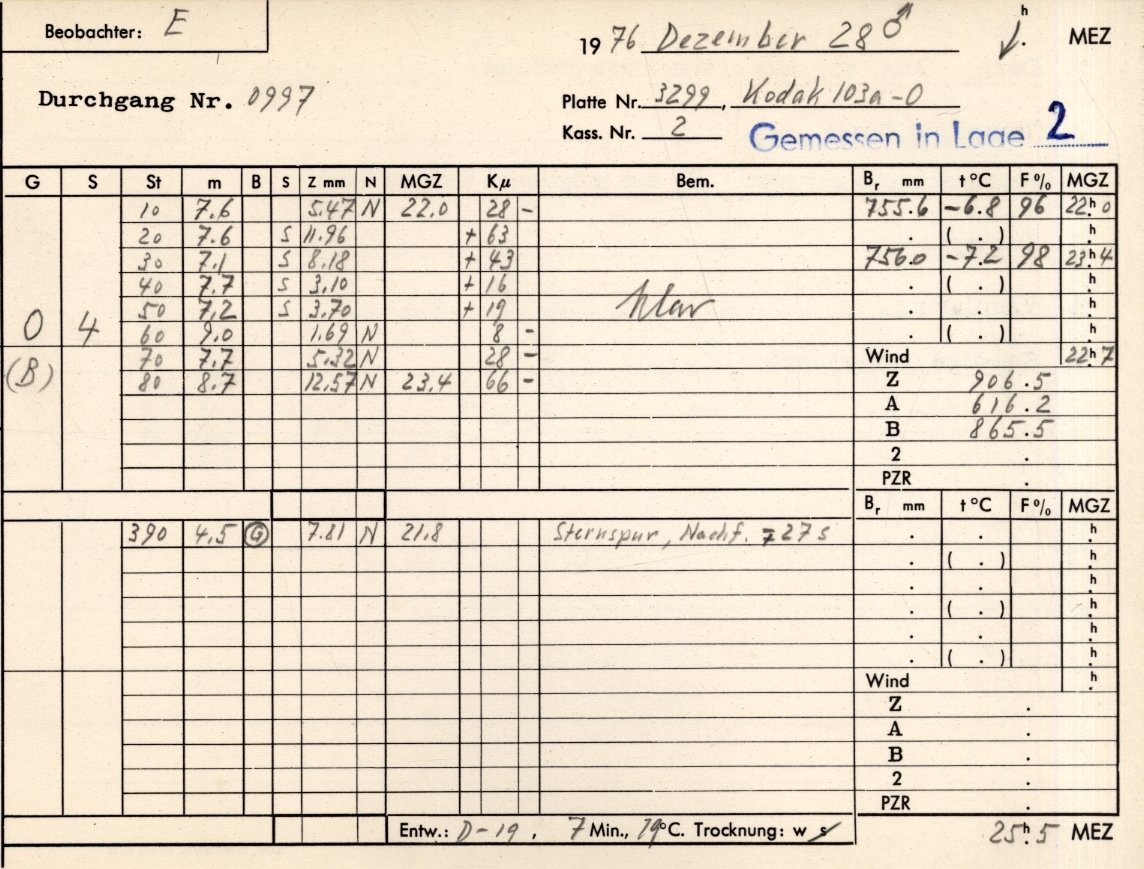 Beobachter: E
1976 Dezember 28 ♂ h. MEZ
Durchgang Nr. 0997
Platte Nr. 3299, Kodak 103a-O
Kass. Nr. 2 Gemessen in Lage 2
G S St m B S Z mm N MGZ Kμ Bem. Br mm t°C F% MGZ
10 7.6 5.47 N 22.0 28 - 755.6 -6.8 96 22h.0
20 7.6 S 11.96 + 63 . ( . ) h.
30 7.1 S 8.18 + 43 756.0 -7.2 98 23h.4
40 7.7 S 3.10 + 16 . ( . ) h.
0 4 50 7.2 S 3.70 + 19 klar . . h.
60 9.0 1.69 N 8 - . ( . ) h.
(B) 70 7.7 5.32 N 28 - Wind 22h.7
80 8.7 12.57 N 23.4 66 - Z 906.5
A 616.2
B 865.5
2 .
PZR .
Br mm t°C F% MGZ
390 4.5 G 7.81 N 21.8 Sternspur, Nachf. 27s . . h.
. ( . ) h.
. . h.
. ( . ) h.
. . h.
. ( . ) h.
Wind h.
Z .
A .
B .
2 .
PZR .
Entw.: D-19, 7 Min., 19°C. Trocknung: w s 25h.5 MEZ